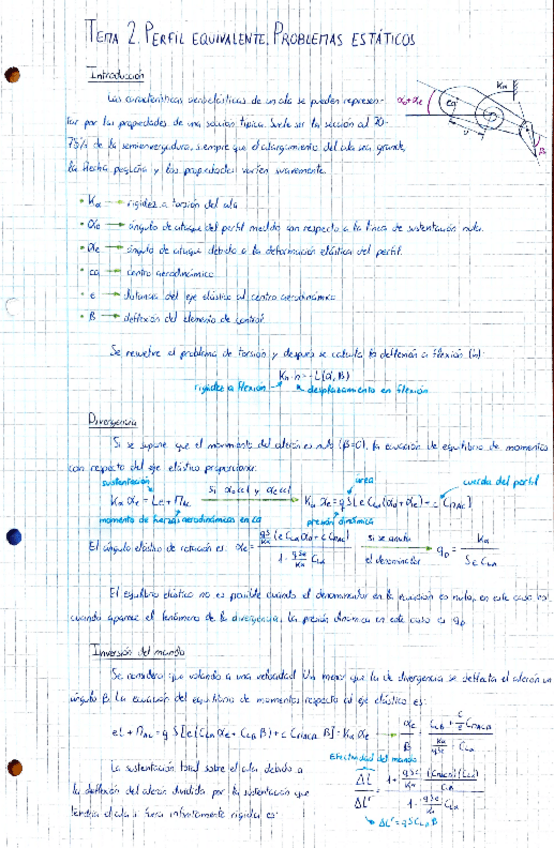 TEMA 2. PERFIL EQUIVALENTE. PROBLEMAS ESTÁTICOS
Introducción
Las características aeroelásticas de un ala se pueden represen-
tar por las propiedades de una sección típica. Suele ser la sección al 70-
75% de la semienvergadura, siempre que el alargamiento del ala sea grande,
la flecha pequeña y las propiedades varíen suavemente.
• Kα → rigidez a torsión del ala
• α0 → ángulo de ataque del perfil medido con respecto a la línea de sustentación nula.
• αe → ángulo de ataque debido a la deformación elástica del perfil.
• ca → centro aerodinámico
• e → distancia del eje elástico al centro aerodinámico
• β → deflexión del elemento de control
Se resuelve el problema de torsión y después se calcula la deflexión a flexión (h):
Kh · h = -L(α, β)
rigidez a flexión desplazamiento en flexión
Divergencia
Si se supone que el movimiento del alerón es nulo (β=0), la ecuación de equilibrio de momentos
con respecto del eje elástico proporciona:
sustentación área cuerda del perfil
Kα αe = Le + MAC Kα αe = qS[e CLα(α0+αe) + c CMAC]
momento de fuerzas aerodinámicas en ca presión dinámica
El ángulo elástico de rotación es: αe = qS/Kα (e CLα α0 + c CMAC) / 1 - qSe/Kα CLα si se anula el denominador → qD = Kα / S e CLα
El equilibrio elástico no es posible cuando el denominador en la ecuación es nulo, en este caso
cuando aparece el fenómeno de la divergencia. La presión dinámica en este caso es qD
Inversión del mando
Se considera que volando a una velocidad U∞ menor que la de divergencia se deflecta el alerón un
ángulo β. La ecuación del equilibrio de momentos respecto al eje elástico es:
eL + MAC = q S [e(CLα αe + CLβ β) + c CMACβ β] = Kα αe
Efectividad del mando
La sustentación total sobre el ala debido a
la deflexión del alerón dividida por la sustentación que
tendría el ala si fuera infinitamente rígida es:
ΔL / ΔLr
ΔLr = qS CLβ β